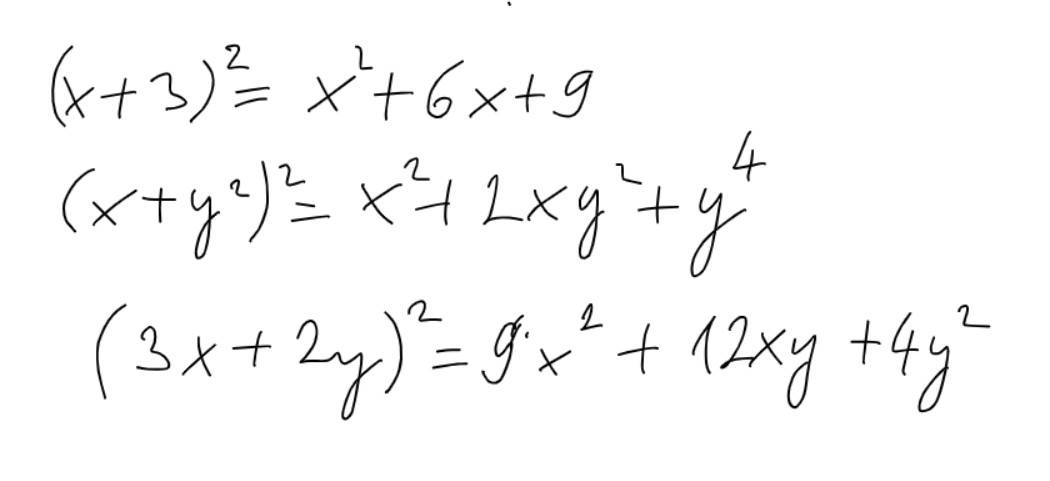 (x+3)²= x²+6x+9
(x+y²)²= x²+2xy²+y⁴
(3x+2y)²=9x²+12xy+4y²